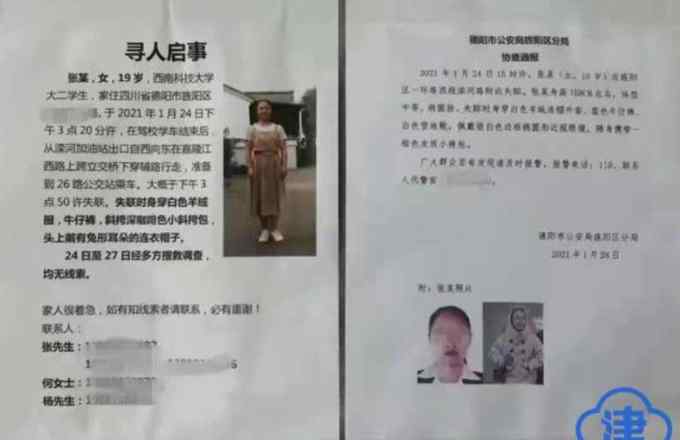 寻人启事
张某，女，19岁，西南科技大学
大二学生，家住四川省德阳市旌阳区
，于2021年1月24日下
午3点20分许，在驾校学车结束后，
从滦河加油站出口自西向东在嘉陵江
西路上跨立交桥下穿辅路行走，准备
到26路公交站乘车。大概于下午3
点50许失联。失联时身穿白色羊绒
服，牛仔裤，斜挎深咖啡色小斜挎包，
头上戴有兔形耳朵的连衣帽子。
24日至27日经多方搜救调查，
均无线索。
家人很着急，如有知线索者请联系，必有重谢！
联系人：
张先生：
何女士：
杨先生：
德阳市公安局旌阳区分局
协查通报
2021年1月24日15时许，张某（女，19岁）在旌阳
区一环路西段滦河路附近失踪。张某身高
中等，椭圆脸，失踪时身穿白色羊绒连帽外套，蓝色牛仔裤，
白色雪地靴，佩戴银白色边框椭圆形近视眼镜，随身携带一
棕色皮质小挎包。
广大群众若有发现请及时报警，报警电话：110，联系
人代警官
德阳市公安局旌阳区分局
2021年1月28日
附：张某照片
津